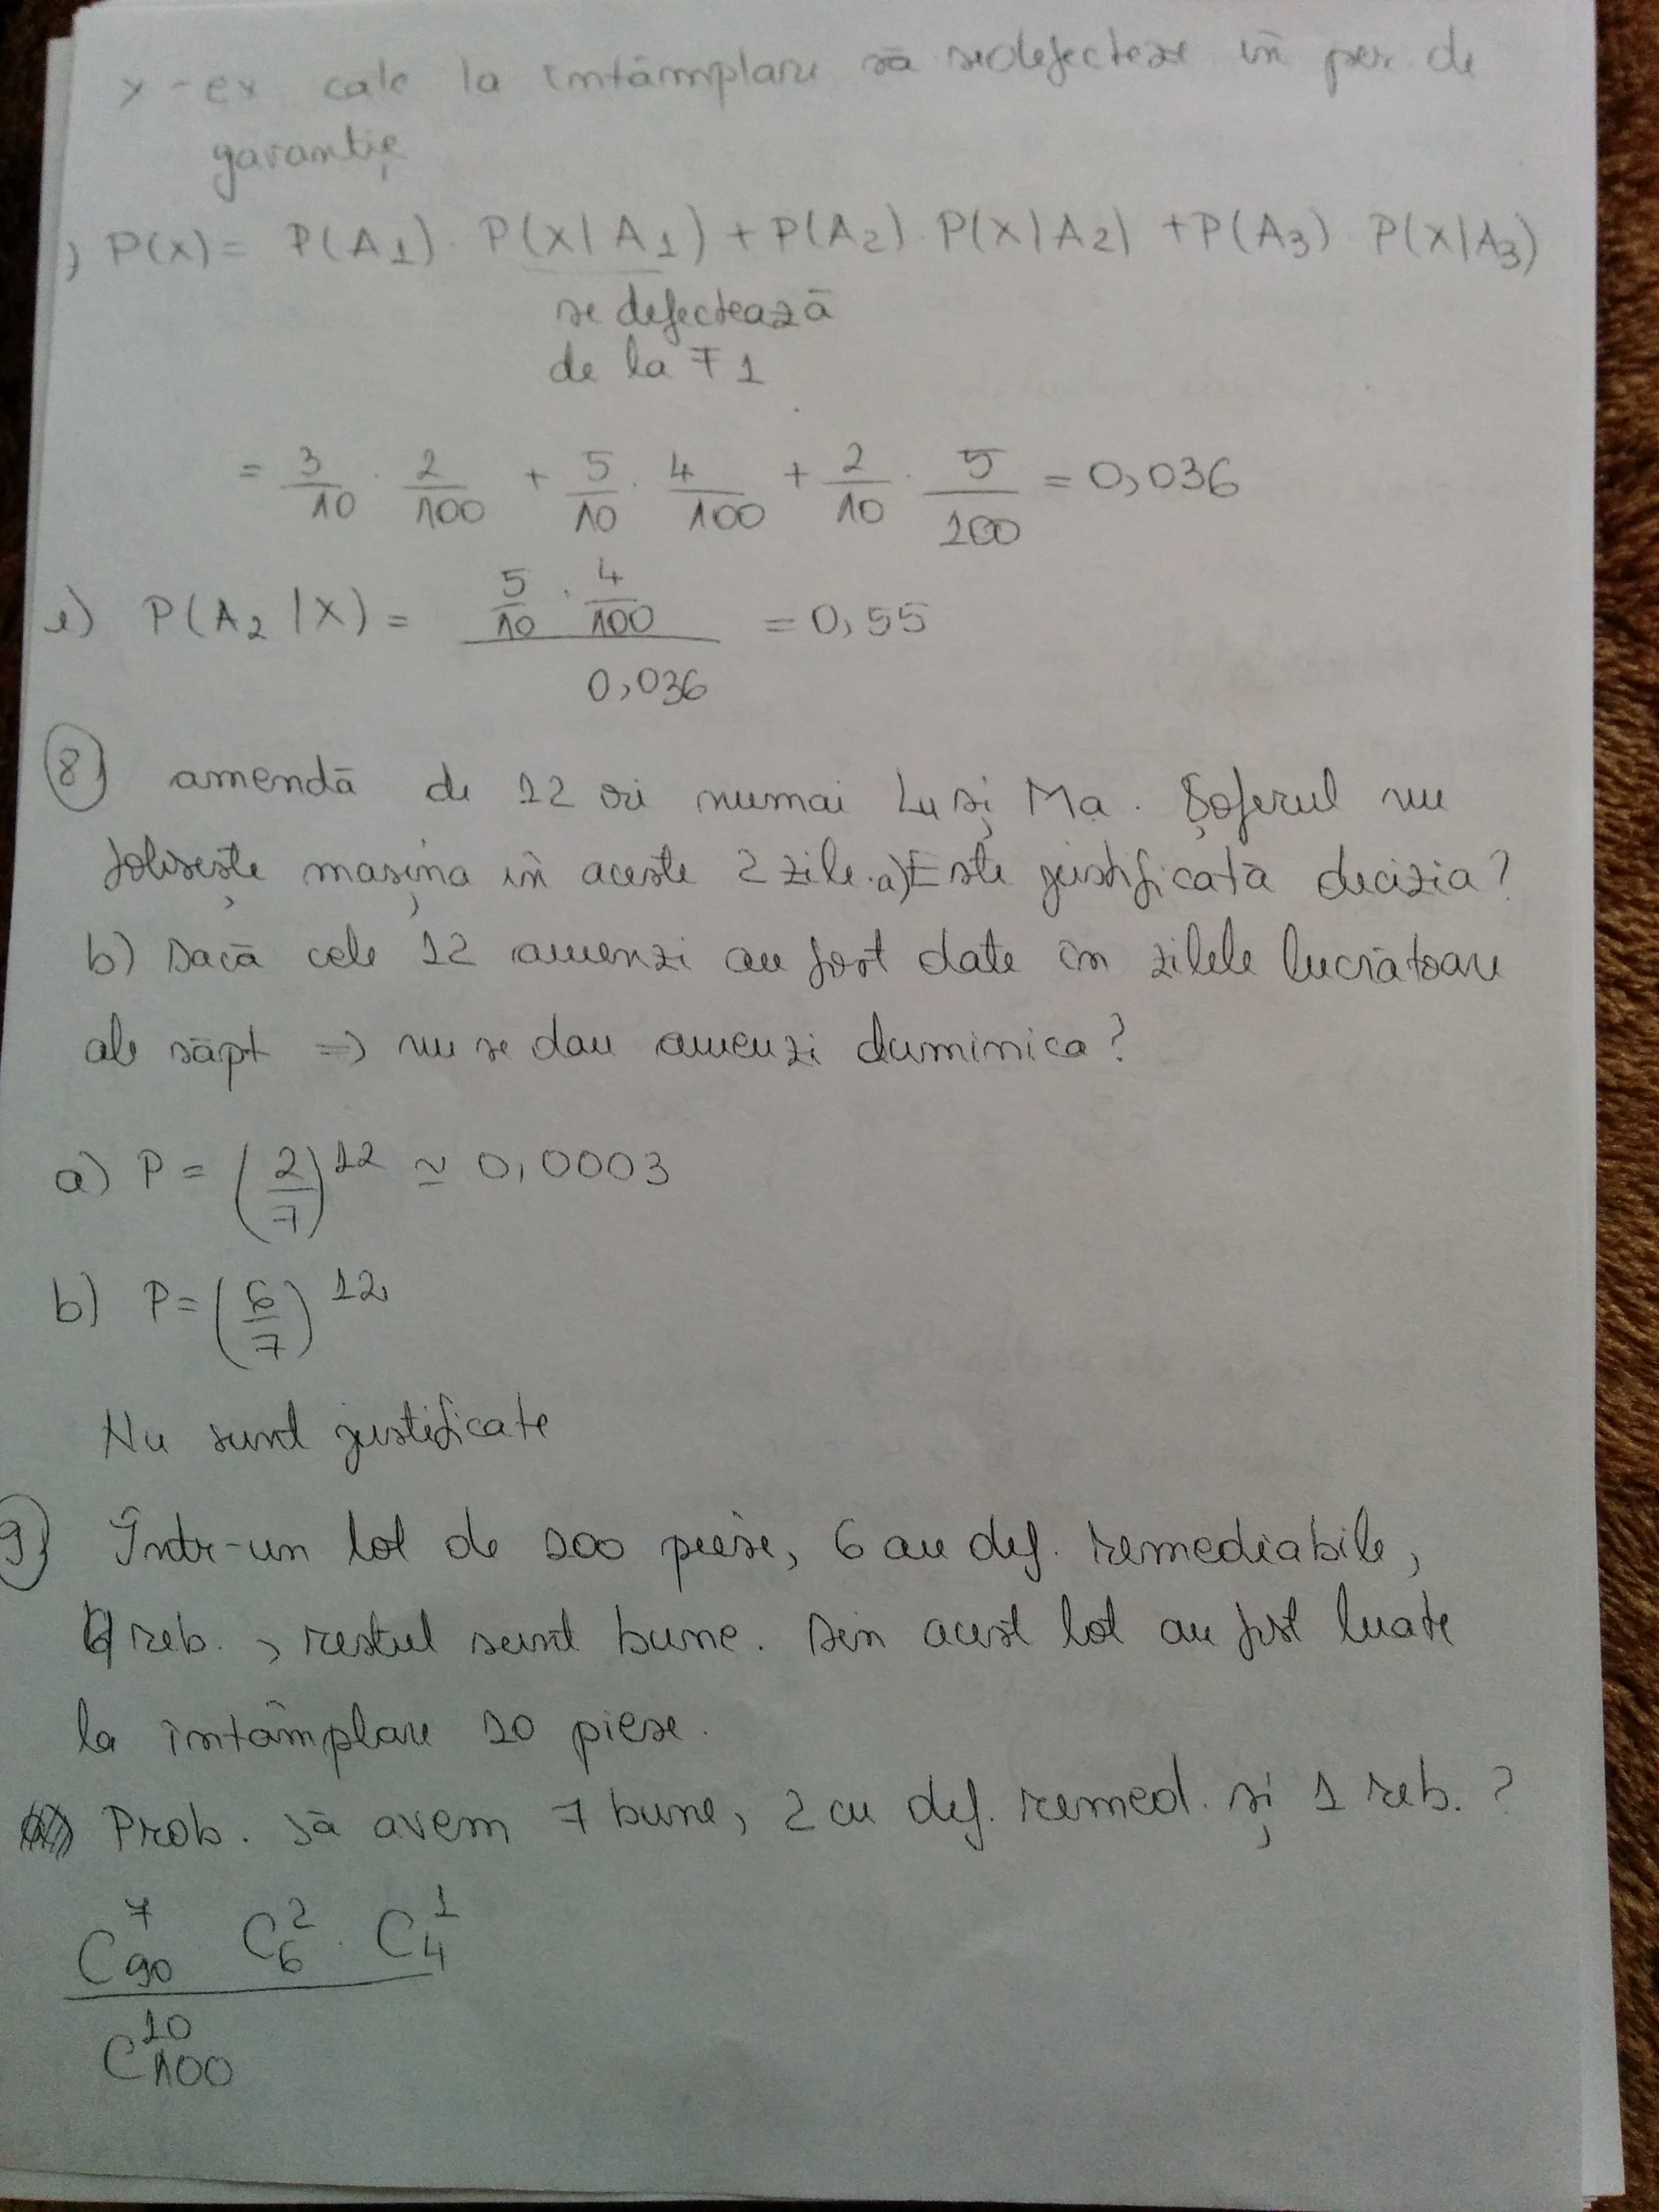 x - ex cale la întâmplare să se defecteze în per de
garanție
) P(x) = P(A1) · P(X|A1) + P(A2) · P(X|A2) + P(A3) · P(X|A3)
se defectează
de la F1
= 3/10 · 2/100 + 5/10 · 4/100 + 2/10 · 5/100 = 0,036
e) P(A2|X) = (5/10 · 4/100) / 0,036 = 0,55
8) amendă de 12 ori numai Lu și Ma. Șoferul nu
folosește mașina în aceste 2 zile. a) Este justificată decizia?
b) Dacă cele 12 amenzi au fost date în zilele lucrătoare
ale săpt => nu se dau amenzi duminica?
a) P = (2/7)^12 ≃ 0,0003
b) P = (6/7)^12
Nu sunt justificate
9) Într-un lot de 100 piese, 6 au def. remediabile,
4 reb., restul sunt bune. Din acest lot au fost luate
la întâmplare 10 piese.
Prob. să avem 7 bune, 2 cu def. remed. și 1 reb. ?
C_90^7 C_6^2 · C_4^1
C_100^10